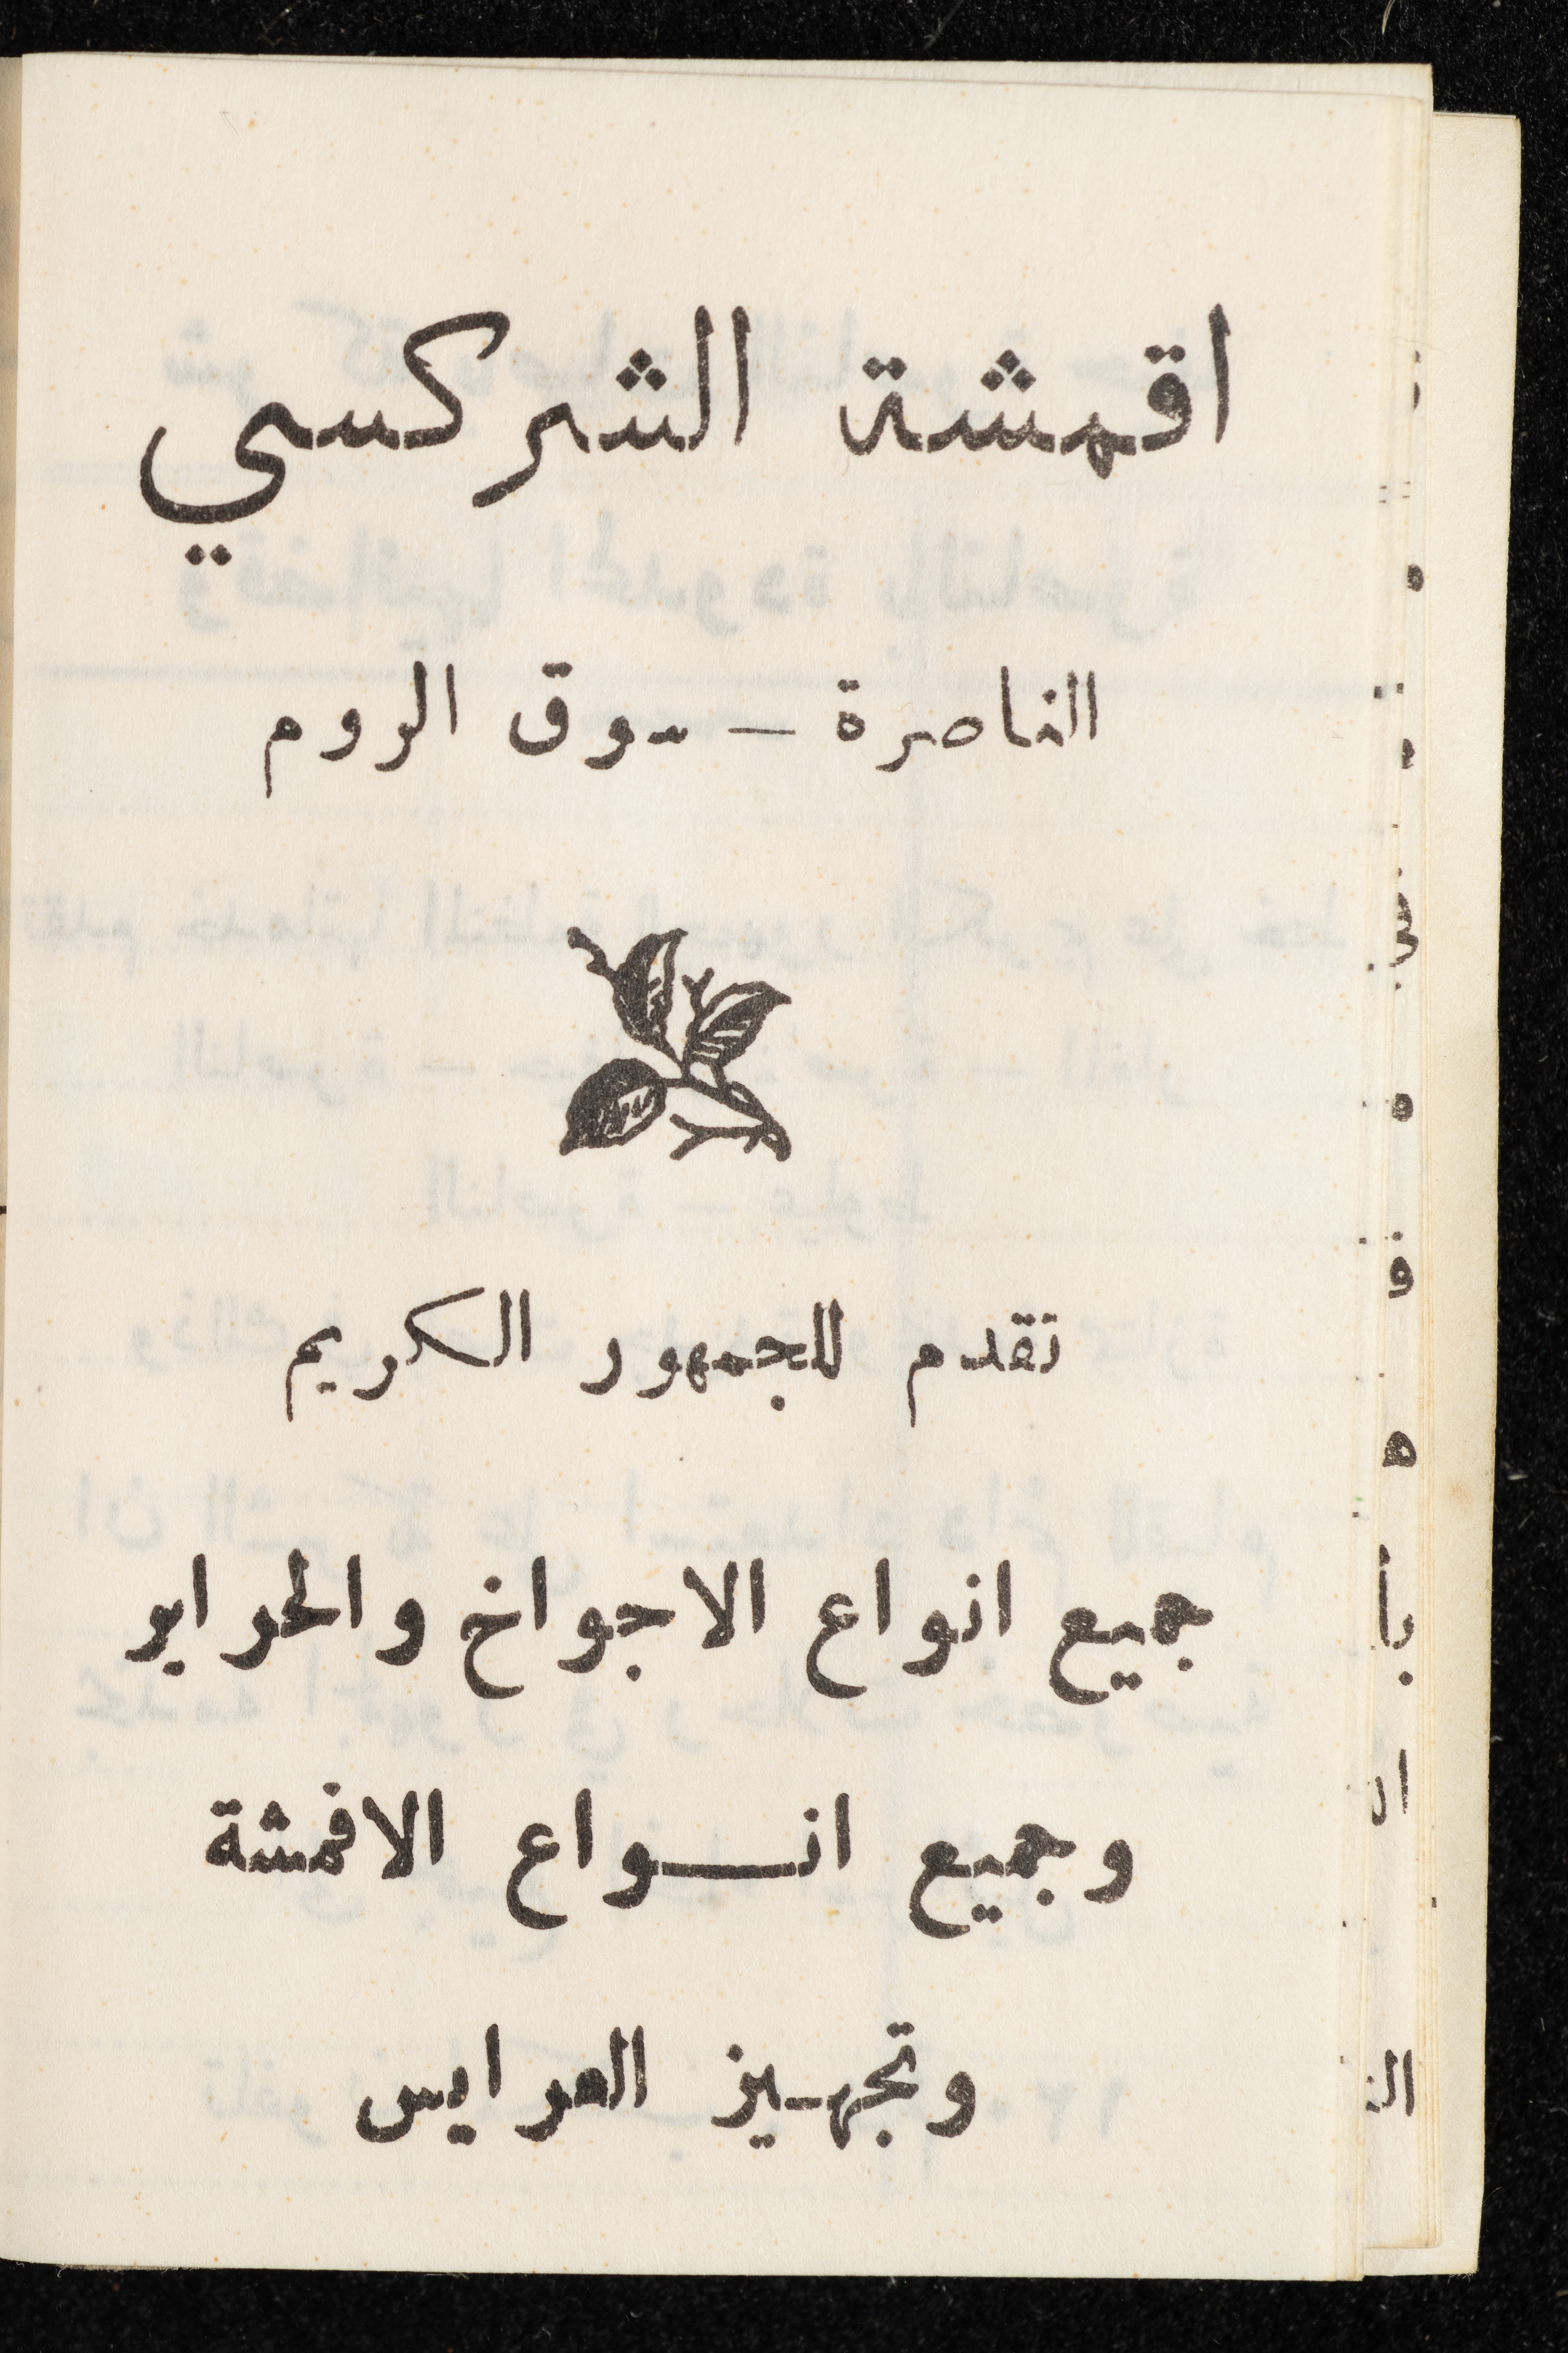 اقمشة الشركسي
الناصرة — سوق الروم
تقدم للجمهور الكريم
جميع انواع الاجواخ والحراير
وجميع انـــواع الاقمشة
وتجهـيز العرايس